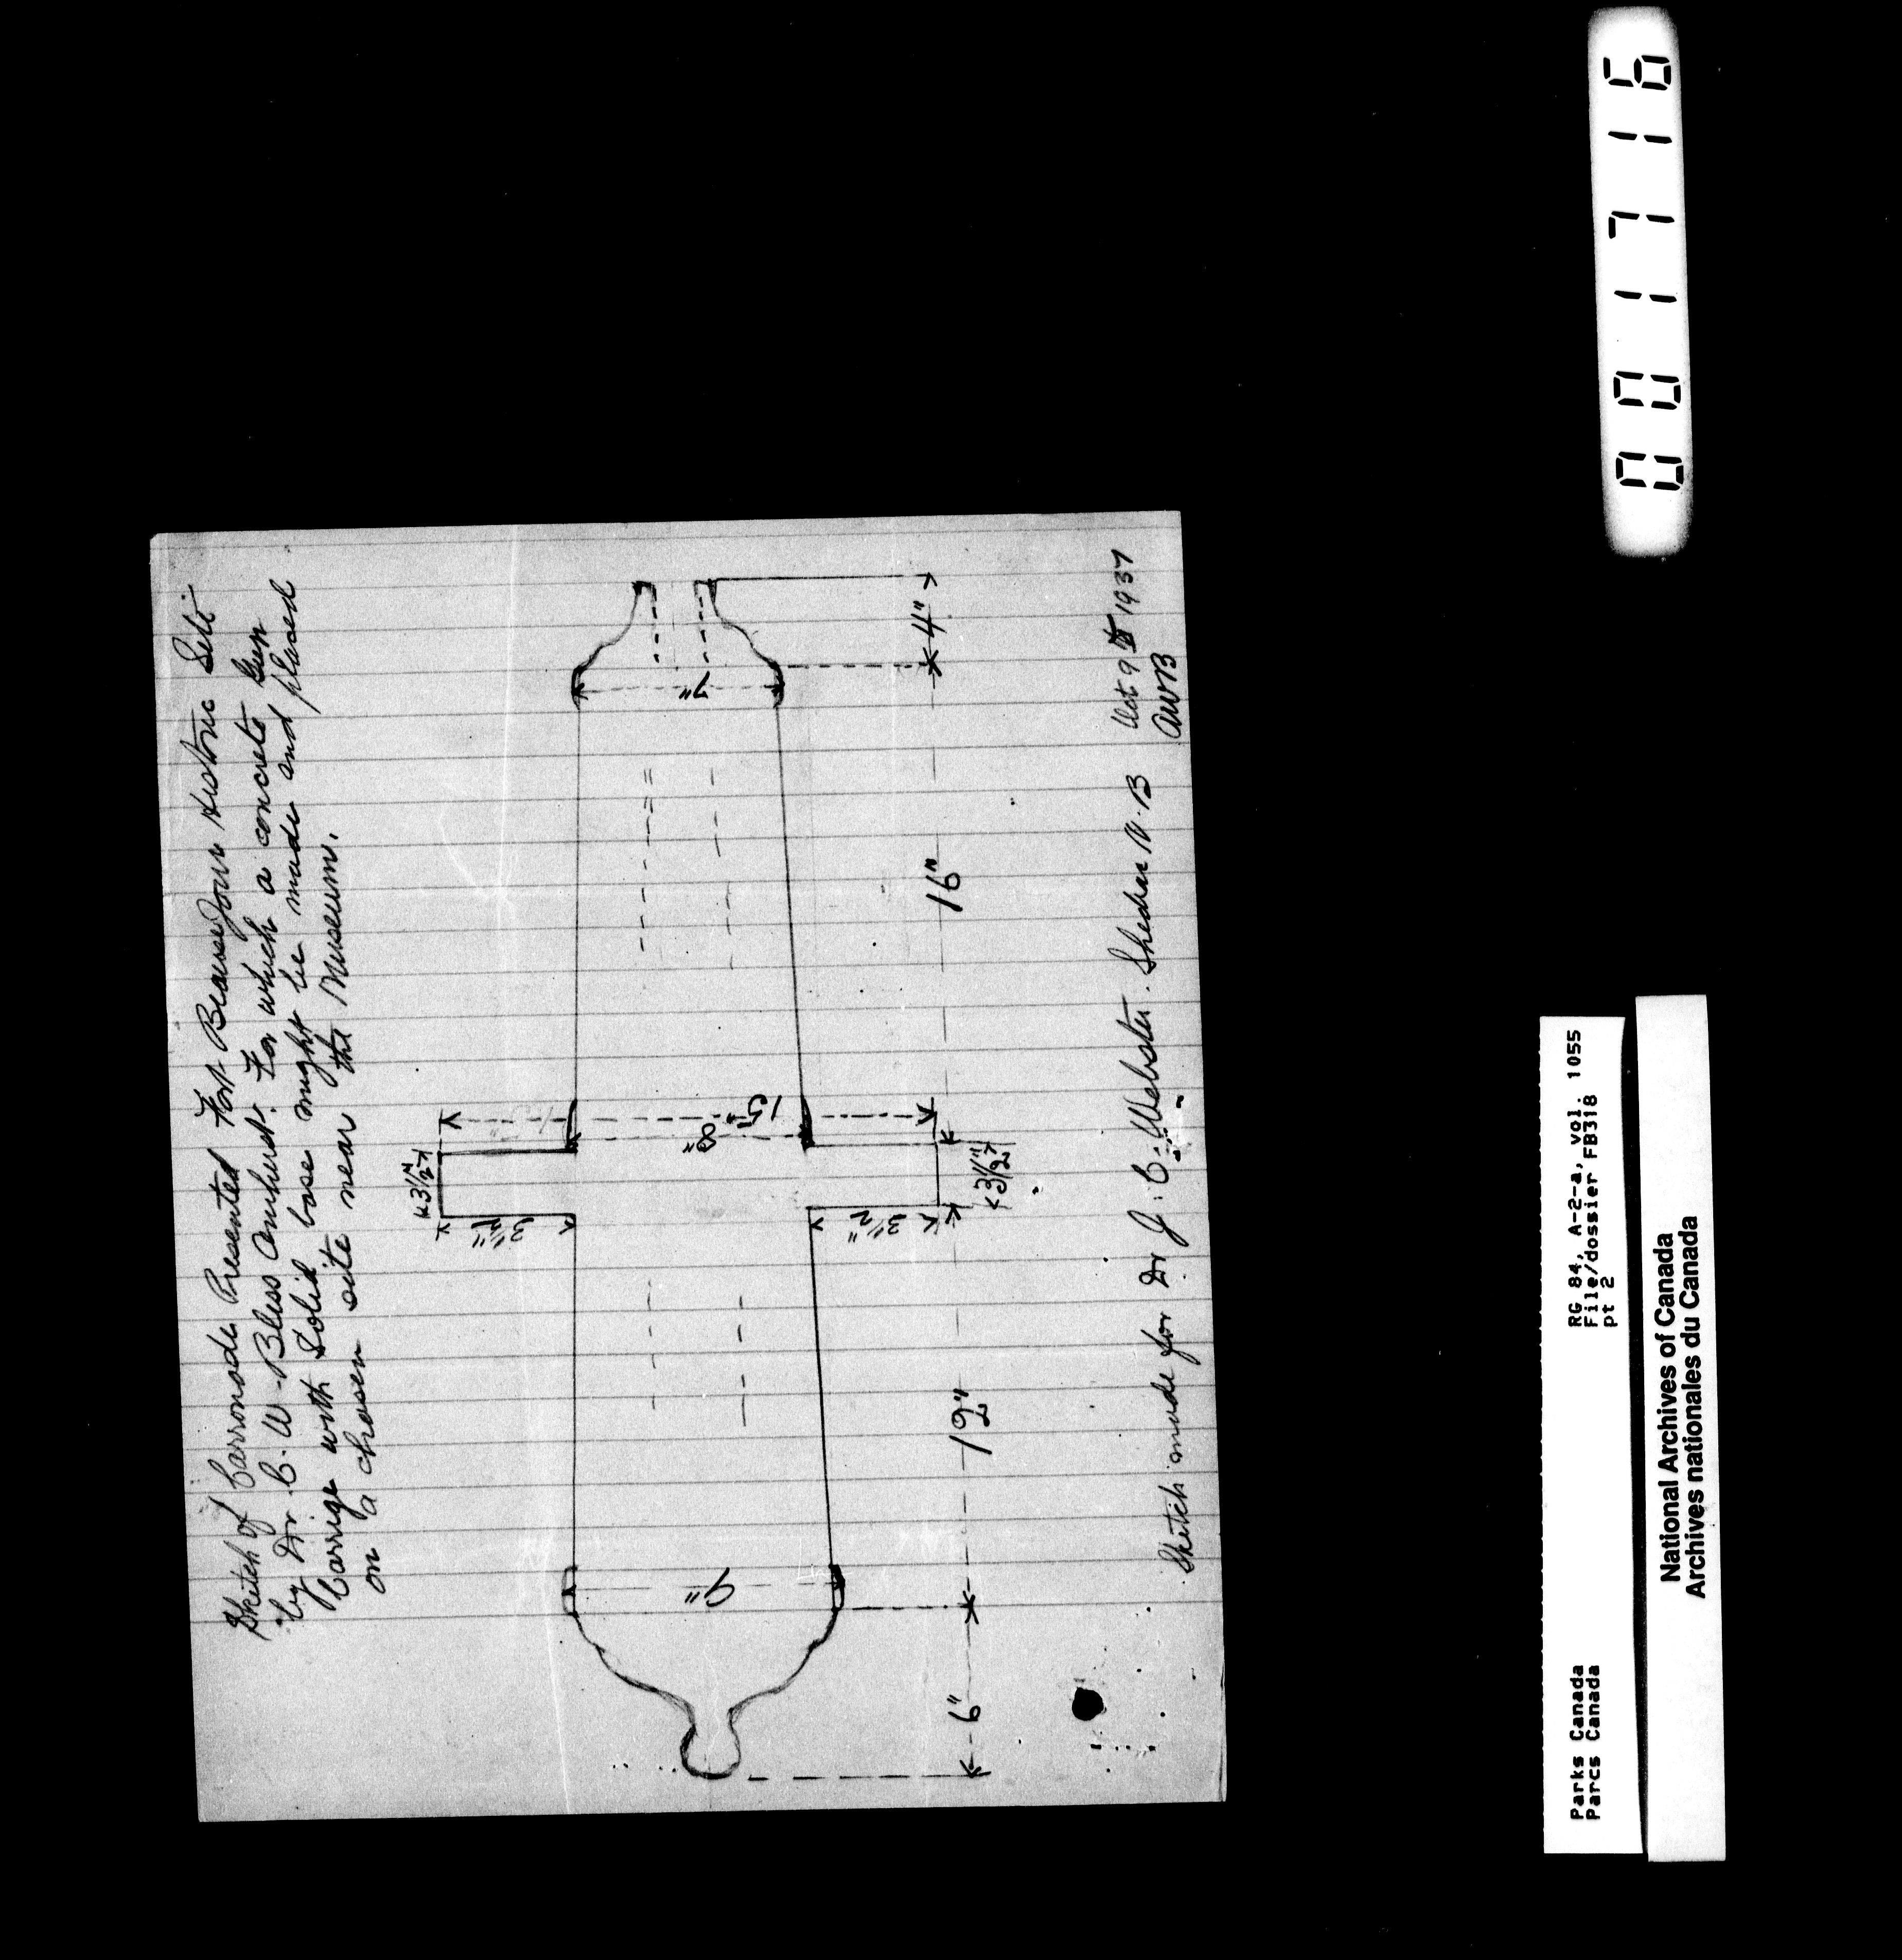 Sketch of Carronade Presented Fort Beausejour Historic Site
by Dr. C. W. Bliss Amherst. For which a concrete Gun
Carrige with Solid base might be made and placed
on a chosen site near the Museum.
3 1/2"
3 1/2"
15"
8"
7"
9"
3 1/2"
3 1/2"
6"
12"
16"
4"
Sketch made for Dr J. C. Webster. Shediac N.B
Oct 9 1937
AWB
001716
Parks Canada
Parcs Canada
RG 84, A-2-a, vol. 1055
File/dossier FB318
pt 2
National Archives of Canada
Archives nationales du Canada